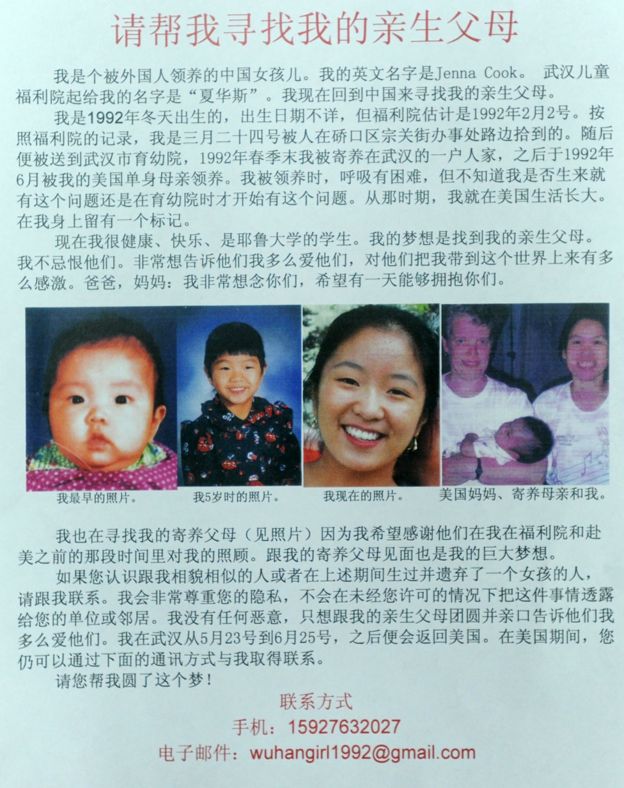 请帮我寻找我的亲生父母
我是个被外国人领养的中国女孩儿。我的英文名字是Jenna Cook。 武汉儿童
福利院起给我的名字是“夏华斯”。我现在回到中国来寻找我的亲生父母。
我是1992年冬天出生的，出生日期不详，但福利院估计是1992年2月2号。按
照福利院的记录，我是三月二十四号被人在硚口区宗关街办事处路边拾到的。随后
便被送到武汉市育幼院，1992年春季末我被寄养在武汉的一户人家，之后于1992年
6月被我的美国单身母亲领养。我被领养时，呼吸有困难，但不知道我是否生来就
有这个问题还是在育幼院时才开始有这个问题。从那时期，我就在美国生活长大。
在我身上留有一个标记。
现在我很健康、快乐、是耶鲁大学的学生。我的梦想是找到我的亲生父母。
我不忌恨他们。非常想告诉他们我多么爱他们，对他们把我带到这个世界上来有多
么感激。爸爸，妈妈：我非常想念你们，希望有一天能够拥抱你们。
我最早的照片。
我5岁时的照片。
我现在的照片。
美国妈妈、寄养母亲和我。
我也在寻找我的寄养父母（见照片）因为我希望感谢他们在我在福利院和赴
美之前的那段时间里对我的照顾。跟我的寄养父母见面也是我的巨大梦想。
如果您认识跟我相貌相似的人或者在上述期间生过并遗弃了一个女孩的人，
请跟我联系。我会非常尊重您的隐私，不会在未经您许可的情况下把这件事情透露
给您的单位或邻居。我没有任何恶意，只想跟我的亲生父母团圆并亲口告诉他们我
多么爱他们。我在武汉从5月23号到6月25号，之后便会返回美国。在美国期间，您
仍可以通过下面的通讯方式与我取得联系。
请您帮我圆了这个梦！
联系方式
手机：15927632027
电子邮件：wuhangirl1992@gmail.com